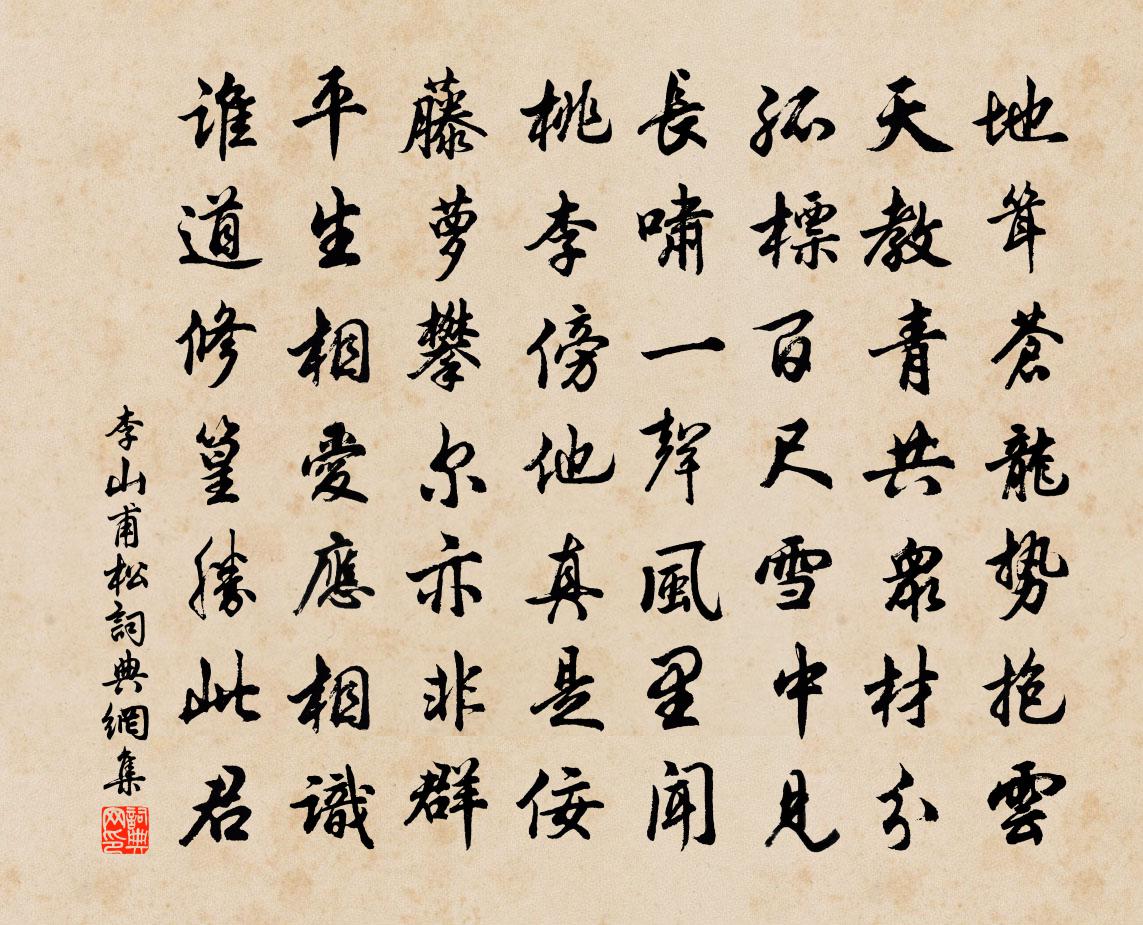 地耸蒼龍勢抱雲
天教青共衆材分
孤標百尺雪中見
長嘯一聲風里聞
桃李傍他真是佞
藤萝攀尔亦非群
平生相愛應相識
谁道修篁勝此君
李山甫松詞典網集
詞典网印